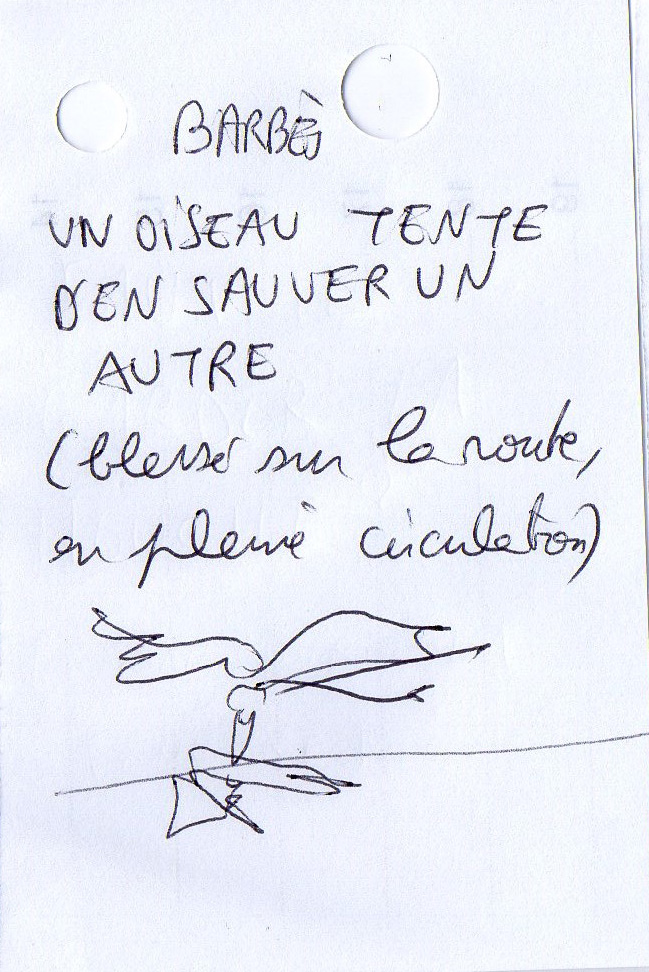 BARBÈS
UN OISEAU TENTE
D'EN SAUVER UN
AUTRE
(blessé sur la route,
en pleine circulation)